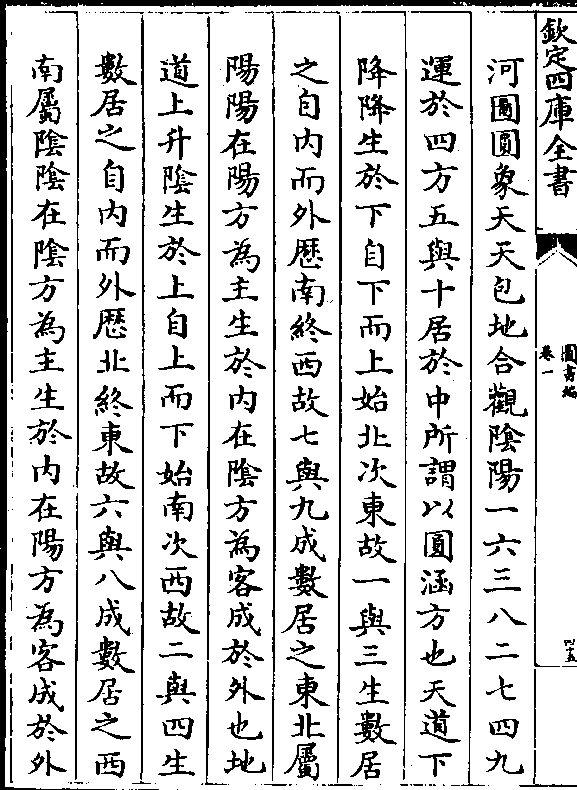 欽定四庫全書
圖書編
卷一
四十五
河圖圓象天天包地合觀陰陽一六三八二七四九
運於四方五與十居於中所謂以圓涵方也天道下
降降生於下自下而上始北次東故一與三生數居
之自内而外歴南終西故七與九成數居之東北屬
陽陽在陽方為主生於内在陰方為客成於外也地
道上升陰生於上自上而下始南次西故二與四生
數居之自内而外歴北終東故六與八成數居之西
南屬陰陰在陰方為主生於内在陽方為客成於外